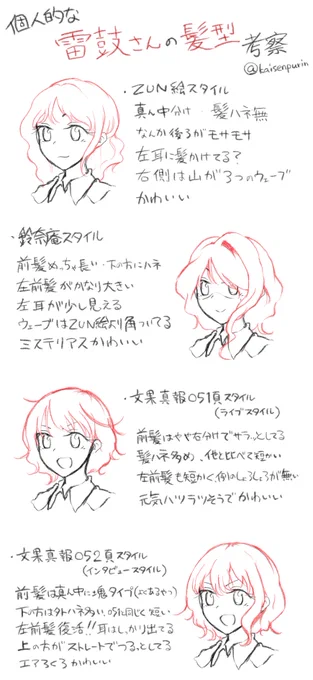 個人的な
雷鼓さんの髪型考察
@kaisenpurin
・ZUN絵スタイル
真ん中分け・髪ハネ無
なんか後ろがモサモサ
左耳に髪かけてる?
右側は山が3つのウェーブ
かわいい
・鈴奈庵スタイル
前髪めっちゃ長い・下の方にハネ
左前髪がかなり大きい
左耳が少し見える
ウェーブはZUN絵より角ついてる
ミステリアスかわいい
・文果真報051頁スタイル
(ライブスタイル)
前髪はやや右分けでサラっとしてる
髪ハネ多め、他と比べて短かい
左前髪も短かく、例のしょろしょろが無い
元気ハツラツそうでかわいい
・文果真報052頁スタイル
(インタビュースタイル)
前髪は真ん中に1塊タイプ(よくあるやつ)
下の方は外ハネ多い、051と同じく短い
左前髪復活!!耳はしっかり出てる
上の方がストレートでつるっとしてる
かわいい